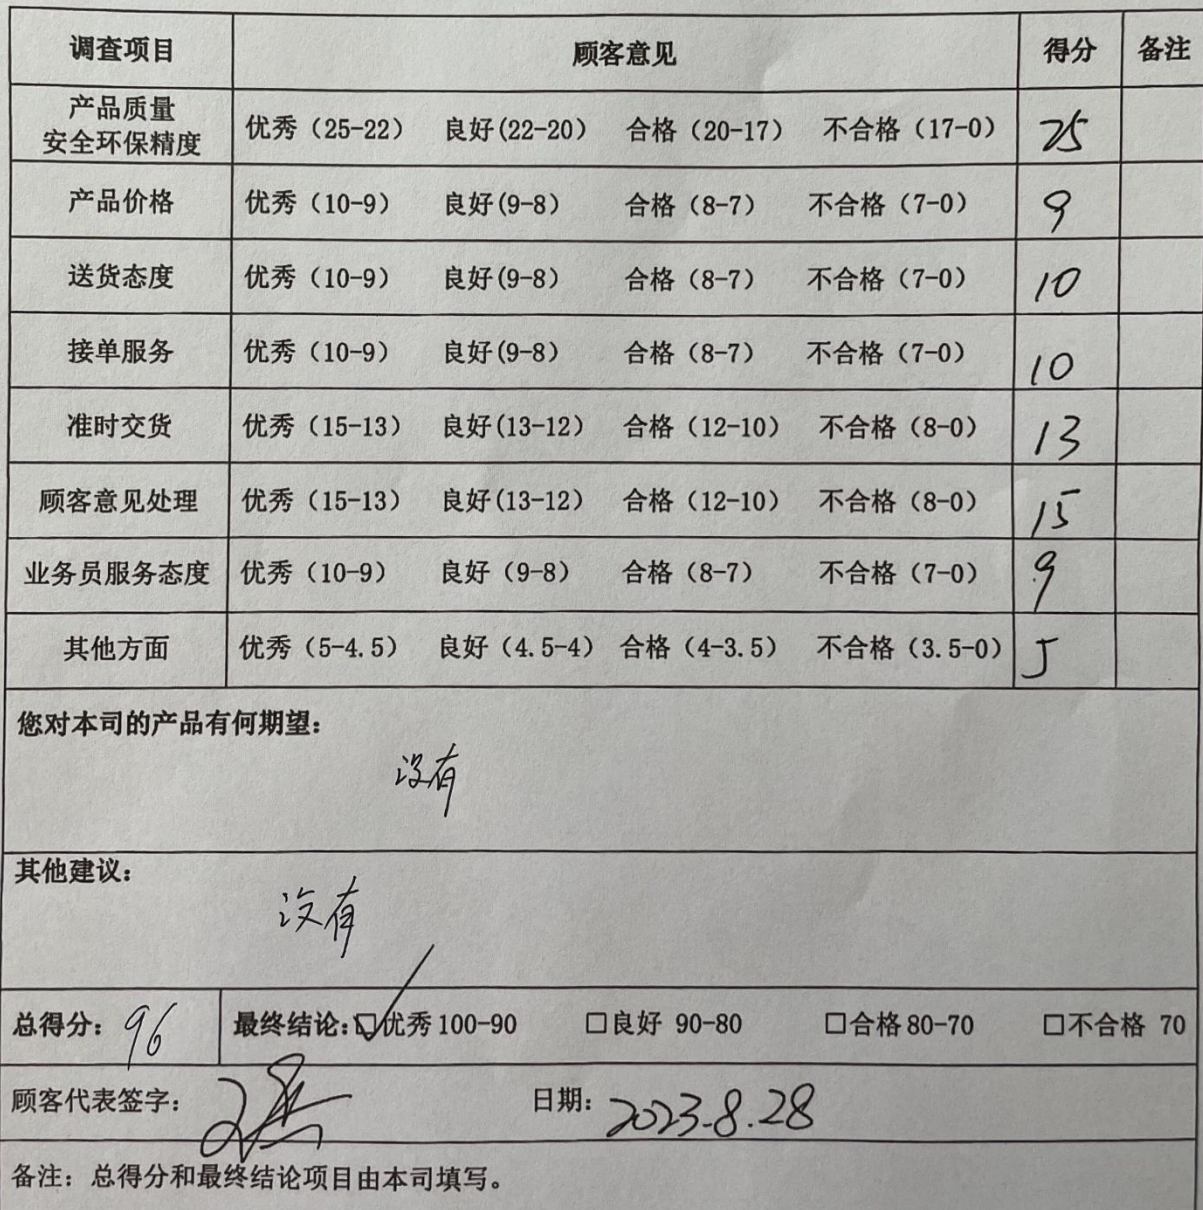 调查项目 顾客意见 得分 备注
产品质量
安全环保精度 优秀（25-22） 良好(22-20） 合格（20-17） 不合格（17-0） 25
产品价格 优秀（10-9） 良好(9-8） 合格（8-7） 不合格（7-0） 9
送货态度 优秀（10-9） 良好(9-8） 合格（8-7） 不合格（7-0） 10
接单服务 优秀（10-9） 良好(9-8） 合格（8-7） 不合格（7-0） 10
准时交货 优秀（15-13） 良好(13-12） 合格（12-10） 不合格（8-0） 13
顾客意见处理 优秀（15-13） 良好(13-12） 合格（12-10） 不合格（8-0） 15
业务员服务态度 优秀（10-9） 良好（9-8） 合格（8-7） 不合格（7-0） 9
其他方面 优秀（5-4.5） 良好（4.5-4） 合格（4-3.5） 不合格（3.5-0） 5
您对本司的产品有何期望：
没有
其他建议：
没有
总得分：96 最终结论：☑优秀100-90 □良好 90-80 □合格80-70 □不合格 70
顾客代表签字： 日期：2023.8.28
备注：总得分和最终结论项目由本司填写。